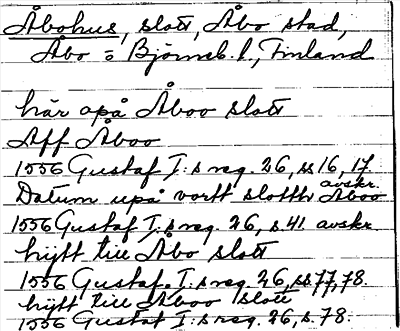 Åbohus, slott, Åbo stad,
Åbo o Björneb. l., Finland
här opå Åboo slott
Aff Åboo
1556 Gustaf I:s reg. 26, ss 16, 17
avskr.
Datum upå vortt slotth Åboo
1556 Gustaf I:s reg. 26, s. 41 avskr
hijtt till Åbo slott
1556 Gustaf I:s reg. 26, ss. 77, 78.
hijtt till Åboo slott
1556 Gustaf I:s reg. 26, s. 78.